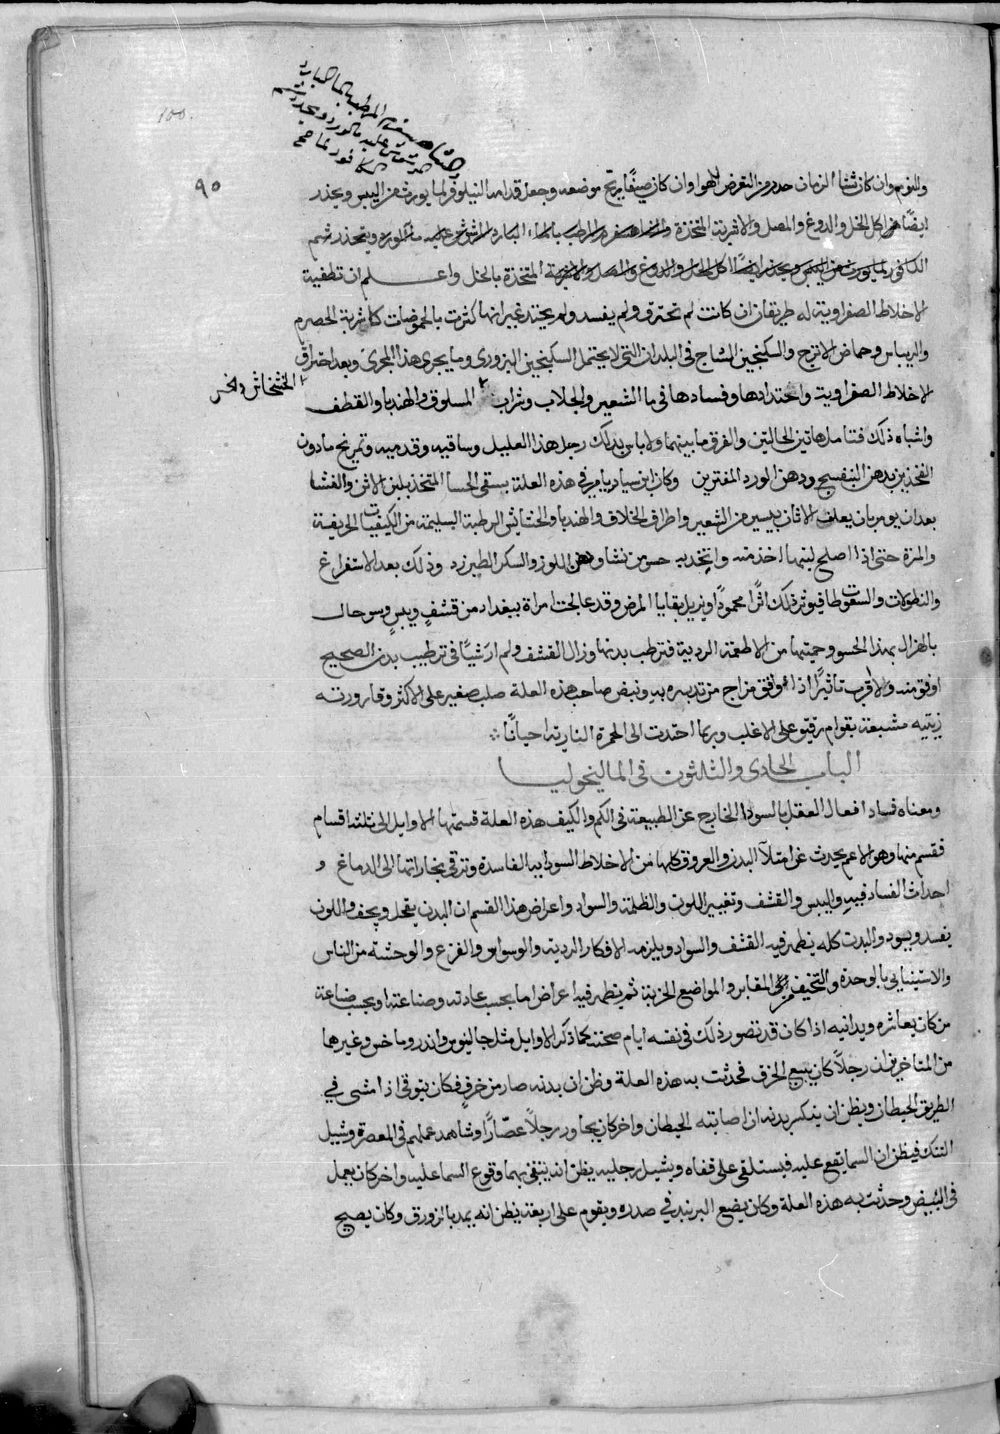 100.
٩٥
والنوم وان كان شتا الزمان حذر من التعرض للهوا وان كان صيفا يرتج موضعه وجعل قدامه النيلوفر لما يورث من اليبس ويحذر
ايضا من اكل الخل والدوغ والمصل والاقريته المتخذة
الكافور لما يورث من اليبس ويحذر ايضا اكل الخل والدوغ والمصل المتخذة بالخل واعلم ان تطفية
الاخلاط الصفراوية له طريقان ان كانت لم تحترق ولم يفسد ولم يحتد غير انها كثرت بالحموضات كاشربة الحصرم
والريباس وحماض الاترج والسكنجبين الساج فى البلدان التى لا يحتمل السكنجبين البزورى وما يجرى هذا المجرى وبعد احتراق
الخشخاش والخس
الاخلاط الصفراوية واحتدادها وفسادها فى ما الشعير والجلاب وشراب المسلوق والهندبا والقطف
واشباه ذلك فتامل هاتين الحالتين والفرق ما بينهما ولا باس بدلك رجل هذا العليل وساقيه وقدميه وتمريخ مادون
الفخذين بدهن البنفسج ودهن الورد المفترين وكان ابن سيار يامر فى هذه العلة بسقى الحسا المتخذ بلبن الاتن والنشا
بعد ان يومر بان يعلف الاتان بيسير من الشعير واطراف الخلاف والهندبا والحشايش الرطبة السليمة من الكيفيات الحريفة
والمرة حتى اذا اصلح لبنها اخذ منه واتخذ به حسو من نشا ودهن اللوز والسكر الطبرزد وذلك بعد الاستفراغ
والنطولات والسعوطات فيوثر ذلك اثرا محمودا ويزيل بقايا المرض وقد عالجت امراة ببغداد من قشف ويبس وسوحال
بالهزال بهذا الحسو وحميتها من الاطعمة الردية فترطب بدنها وزال القشف ولم ار شيا فى ترطيب بدن الصحيح
اوفق منه ولا اقرب تاثيرا اذا وافق مزاج من تدبره به ونبض صاحب هذه العلة صلب صغير على الاكثر وقارورته
زيتيه مشبعة بقوام رقيق على الاغلب وربما احتدت الى الحمرة النارية احيانا ؞
الباب الحادى والثلثون فى الماليخوليا
ومعناه فساد افعال العقل بالسودا الخارج عن الطبيعة فى الكم والكيف هذه العلة قسمتها الاوايل الى ثلثة اقسام
فقسم منها وهو الاعم يحدث عن امتلا البدن والعروق كلها من الاخلاط السوداييه الفاسدة وترقى بخاراتها الى الدماغ و
احداث الفساد فيه واليبس والقشف وتغيير اللون والظلمة والسواد واعراض هذا القسم ان البدن يقحل ويجف واللون
يفسد ويسود والبدن كله يظهر فيه القشف والسواد ويلزمه الافكار الردية والوسواس والفزع والوحشة من الناس
والاستيناس بالوحدة والتخيف من المقابر والمواضع الخربة ثم يظهر فيه اعراض ما بحسب عادته وصناعته او بحسب صناعة
من كان يعاشره ويدانيه اذا كان قد تصور ذلك فى نفسه ايام صحته كما ذكر الاوايل مثل جالينوس واندروماخس وغيرها
من المتاخرين ان رجلا كان يبيع الخزف فحدثت به هذه العلة وظن ان بدنه صار من خزف فكان يتوقى اذا مشى في
الطريق الحيطان ويظن ان ينكسر بدنه ان اصابته الحيطان واخر كان يجاور رجلا عصارا وشاهد عملهم فى المعصرة وشيل
التنك فيظن ان السما يقع عليه فيستلقى على قفاه ويشيل رجليه يظن انه يتقى بهما وقوع السما عليه واخر كان يعمل
فى البيض وحدثت به هذه العلة وكان يضع البربند في صدره ويقوم على اربعة يظن انه يمد بالزورق وكان يصيح